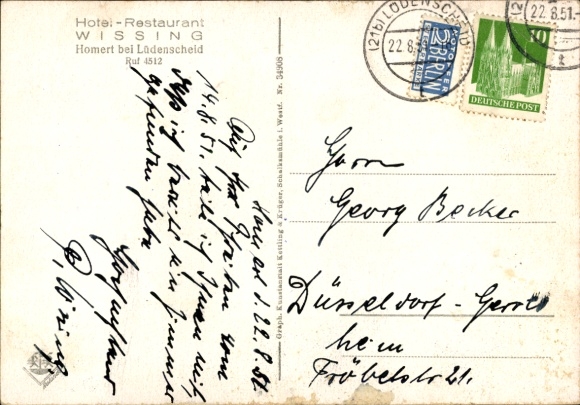 Hotel-Restaurant
WISSING
Homert bei Lüdenscheid
Ruf 4512
d. 22.8.51
Auf Ihr Schreiben vom
14.8.51. teile ich Ihnen mit,
daß ich bereits ein Zimmer
gefunden habe
Graph. Kunstanstalt Kettling & Krüger, Schalksmühle i. Westf. Nr. 34908
(21b) LÜDENSCHEID
22.8.51
NOTOPFER
2 BERLIN
STEUERMARKE
10
DEUTSCHE POST
22.8.51
Herrn
Georg Becker
Düsseldorf-Gerres
heim
Fröbelstr. 21.